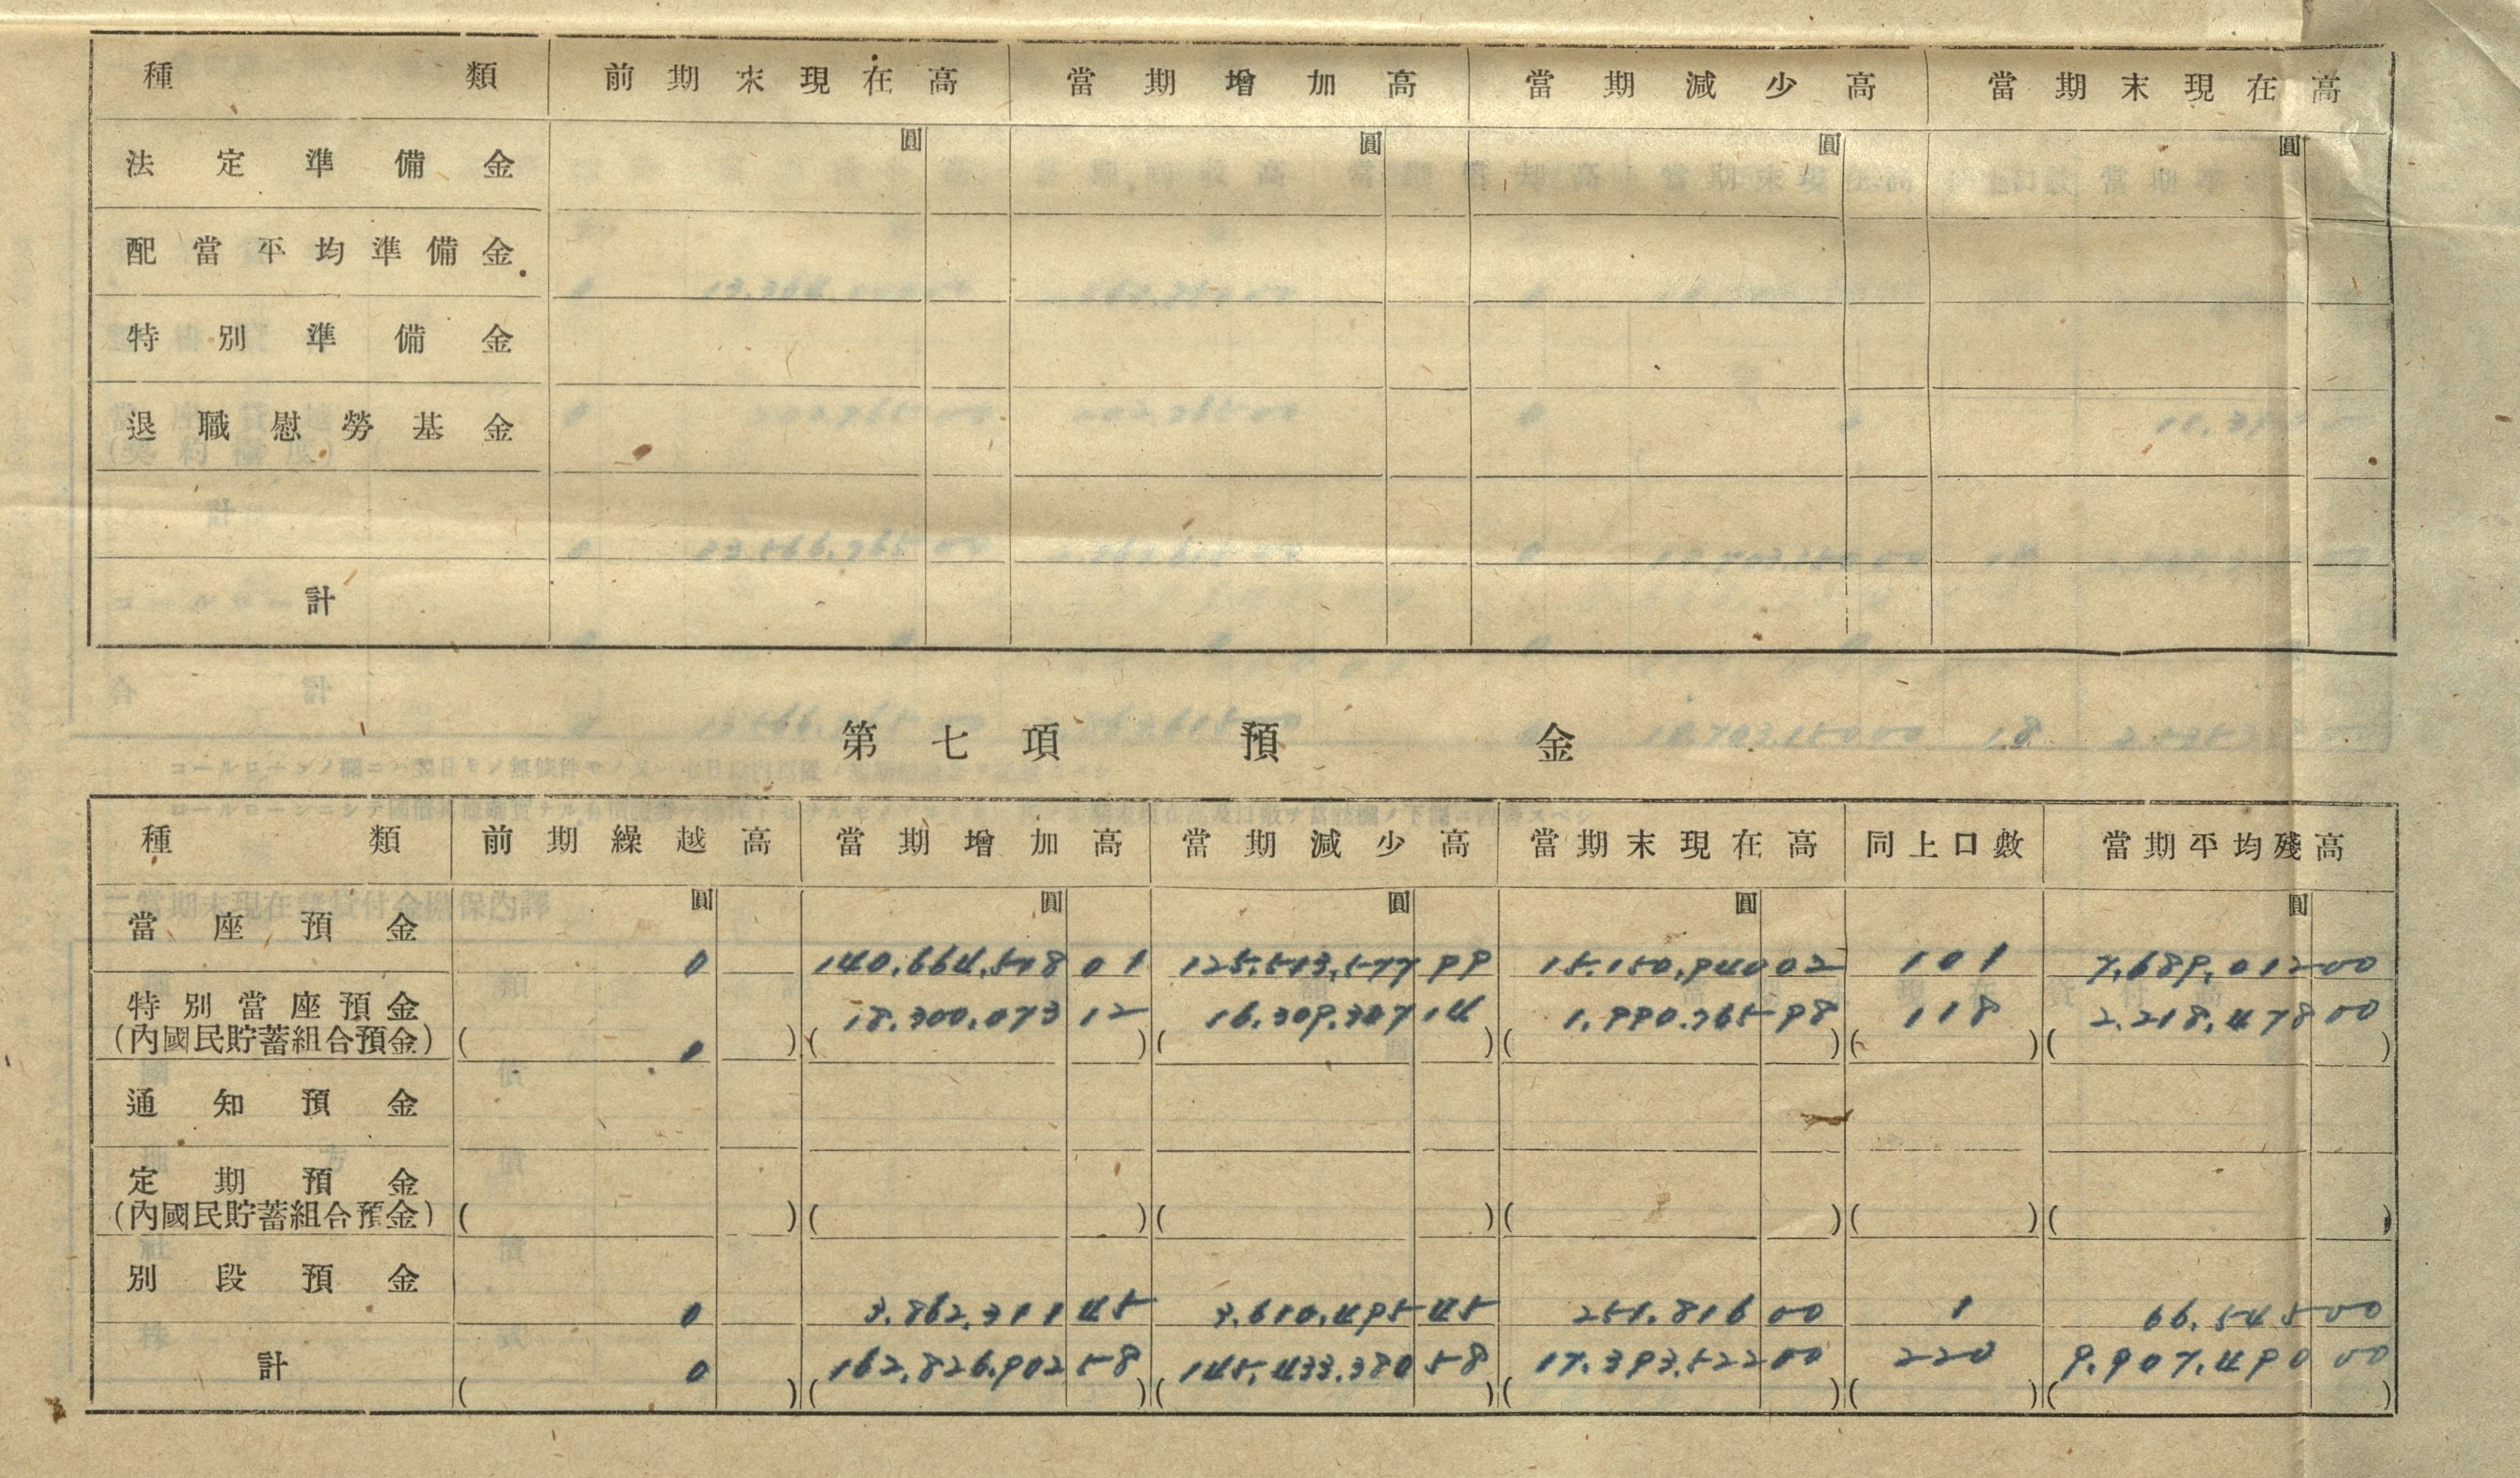 種類 前期末現在高 當期增加高 當期減少高 當期末現在高
法定準備金 圓 圓 圓 圓
配當平均準備金
特別準備金
退職慰勞基金
計
第七項 預金
種類 前期繰越高 當期增加高 當期減少高 當期末現在高 同上口數 當期平均殘高
圓 圓 圓 圓 圓
當座預金 0 140.664.518 01 125.513.577 99 15.150.940 02 101 7.689.012 00
特別當座預金 18.300.073 12 16.309.307 14 1.990.765 98 118 2.218.478 00
(內國民貯蓄組合預金) ( 0 ) ( ) ( ) ( ) ( ) ( )
通知預金
定期預金
(內國民貯蓄組合預金) ( ) ( ) ( ) ( ) ( ) ( )
別段預金 0 3.862.311 45 3.610.495 45 251.816 00 1 66.545 00
計 0 162.826.902 58 145.433.380 58 17.393.522 00 220 9.907.490 00
( ) ( ) ( ) ( ) ( ) ( )